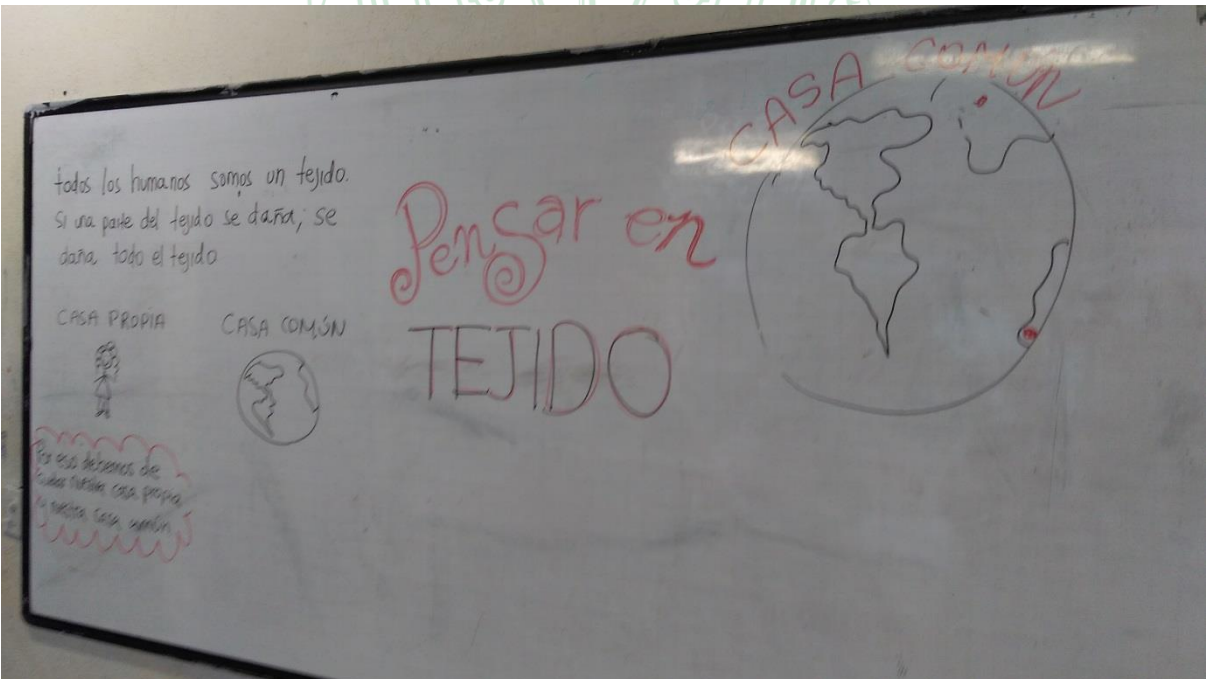 todos los humanos somos un tejido.
Si una parte del tejido se daña, se
daña todo el tejido
CASA PROPIA
CASA COMÚN
Por eso debemos de
cuidar nuestra casa propia
y nuestra casa común
Pensar en
TEJIDO
CASA COMÚN